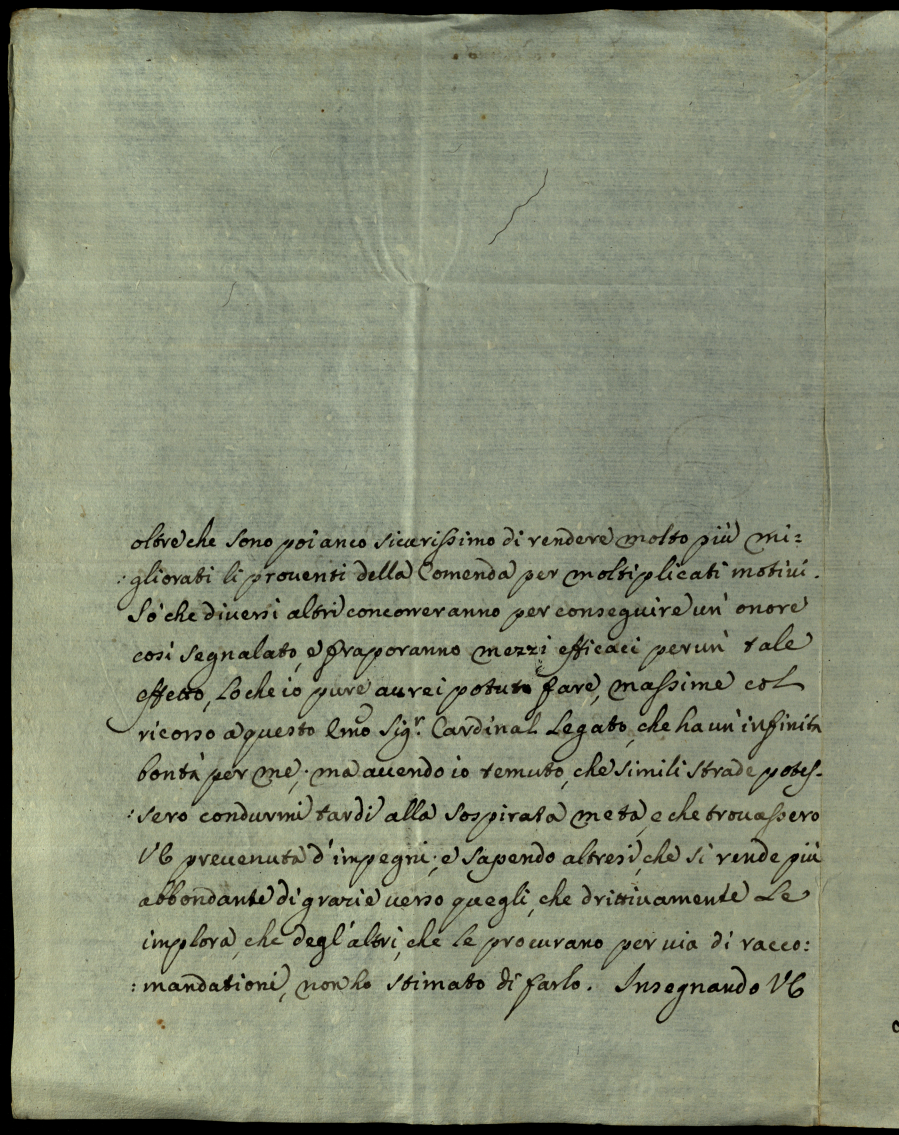 oltre che sono poi anco sicurissimo di rendere molto più mi=
:gliorati li proventi della Comenda per moltiplicati motivi.
Sò che diversi altri concorreranno per conseguire un' onore
così segnalato, e fraporanno mezzi efficaci per un' tale
effetto, Lo che io pure aurei potuto fare, massime col
ricorso a questo Emo Sigr. Cardinal Legato, che ha un' infinita
bontà per me; ma auendo io temuto, che simili strade potes-
:sero condurmi tardi alla sospirata meta, e che trouassero
VE preuenuta d'impegni; e sapendo altresì, che si rende più
abbondante di grazie uerso quegli, che drittiuamente Le
implora, che degl'altri, che le procurano per uia di racco:
:mandationi, non ho stimato di farlo. Insegnando VE